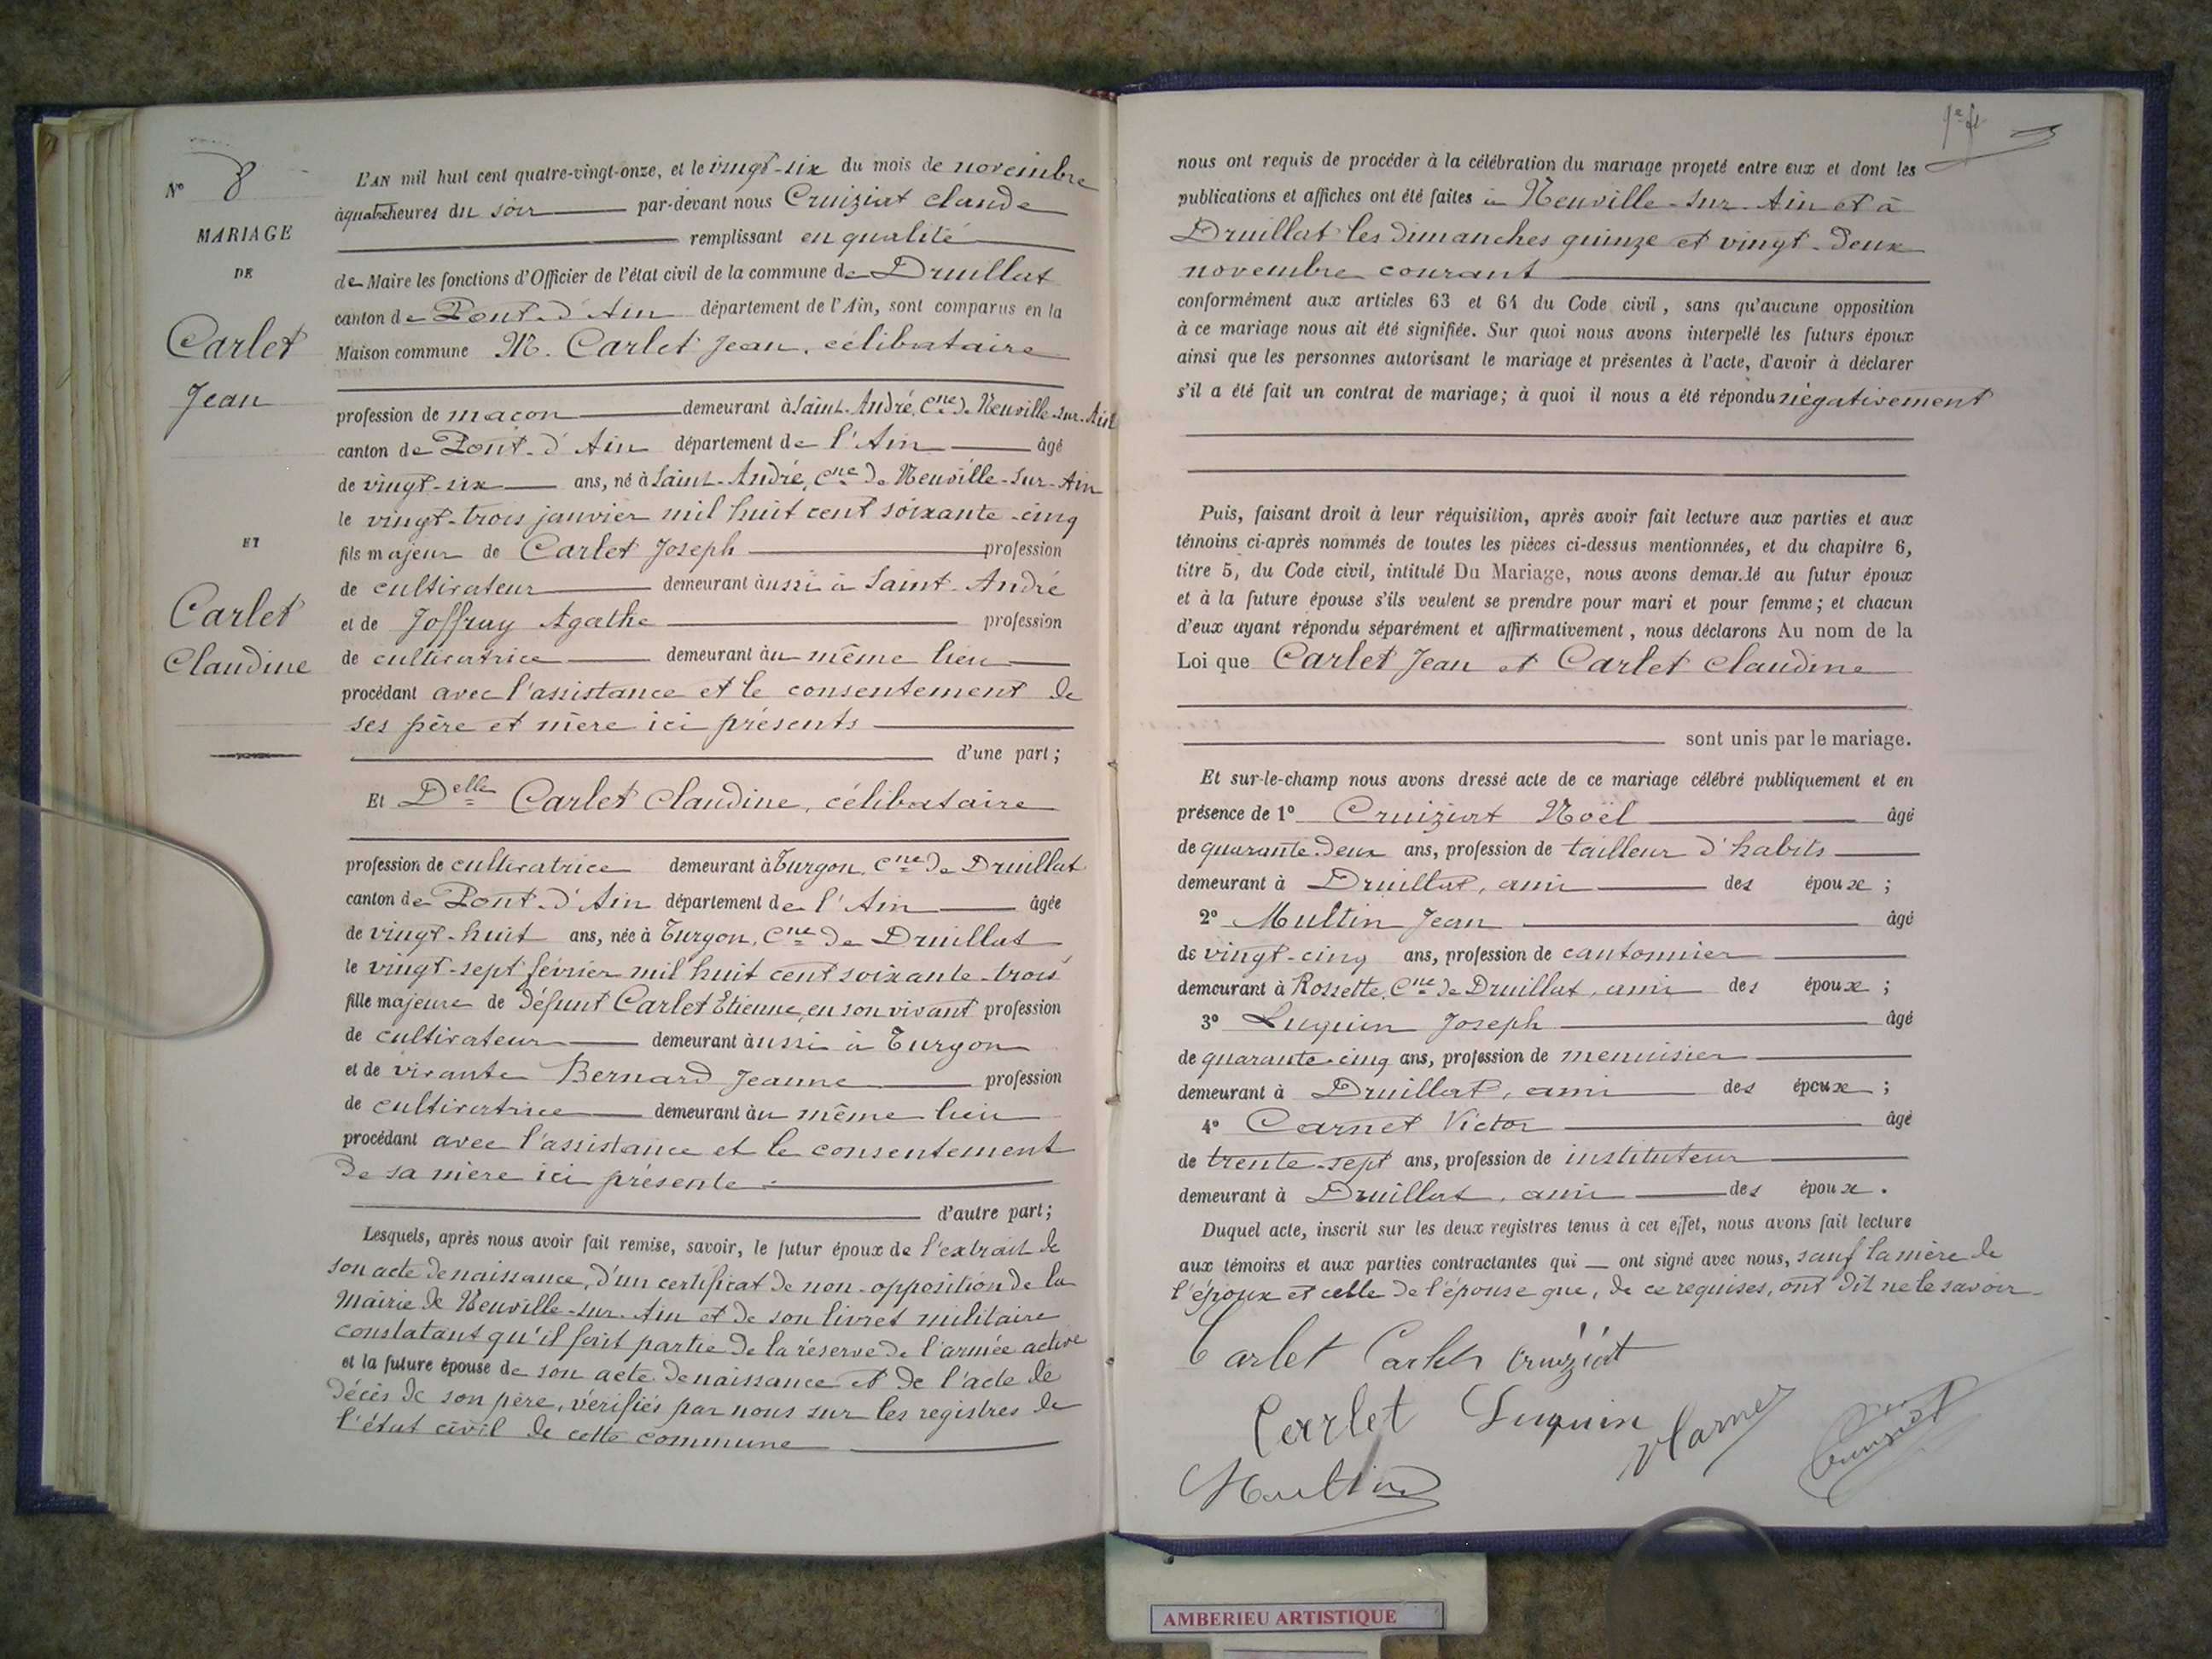 N° 8
MARIAGE
DE
Carlet
Jean
ET
Carlet
Claudine
L'AN mil huit cent quatre-vingt-onze, et le vingt-six du mois de novembre
à quatre heures du soir par-devant nous Cruiziat Claude
remplissant en qualité
de Maire les fonctions d'Officier de l'état civil de la commune de Druillat
canton de Pont-d'Ain département de l'Ain, sont comparus en la
Maison commune M. Carlet Jean, célibataire
profession de maçon demeurant à Saint-André, Cne de Neuville-sur-Ain
canton de Pont-d'Ain département de l'Ain âgé
de vingt-six ans, né à Saint-André, Cne de Neuville-sur-Ain
le vingt-trois janvier mil huit cent soixante-cinq
fils majeur de Carlet Joseph profession
de cultivateur demeurant aussi à Saint-André
et de Joffray Agathe profession
de cultivatrice demeurant au même lieu
procédant avec l'assistance et le consentement de
ses père et mère ici présents
d'une part ;
Et Delle Carlet Claudine, célibataire
profession de cultivatrice demeurant à Turgon, Cne de Druillat
canton de Pont-d'Ain département de l'Ain âgée
de vingt-huit ans, née à Turgon, Cne de Druillat
le vingt-sept février mil huit cent soixante-trois
fille majeure de défunt Carlet Etienne, en son vivant profession
de cultivateur demeurant aussi à Turgon
et de vivante Bernard Jeanne profession
de cultivatrice demeurant au même lieu
procédant avec l'assistance et le consentement
de sa mère ici présente
d'autre part ;
Lesquels, après nous avoir fait remise, savoir, le futur époux de l'extrait de
son acte de naissance, d'un certificat de non-opposition de la
Mairie de Neuville-sur-Ain et de son livret militaire
constatant qu'il fait partie de la réserve de l'armée active
et la future épouse de son acte de naissance et de l'acte de
décès de son père, vérifiés par nous sur les registres de
l'état civil de cette commune
nous ont requis de procéder à la célébration du mariage projeté entre eux et dont les
publications et affiches ont été faites à Neuville-sur-Ain et à
Druillat les dimanches quinze et vingt-deux
novembre courant
conformément aux articles 63 et 64 du Code civil, sans qu'aucune opposition
à ce mariage nous ait été signifiée. Sur quoi nous avons interpellé les futurs époux
ainsi que les personnes autorisant le mariage et présentes à l'acte, d'avoir à déclarer
s'il a été fait un contrat de mariage ; à quoi il nous a été répondu négativement
Puis, faisant droit à leur réquisition, après avoir fait lecture aux parties et aux
témoins ci-après nommés de toutes les pièces ci-dessus mentionnées, et du chapitre 6,
titre 5, du Code civil, intitulé Du Mariage, nous avons demandé au futur époux
et à la future épouse s'ils veulent se prendre pour mari et pour femme ; et chacun
d'eux ayant répondu séparément et affirmativement, nous déclarons Au nom de la
Loi que Carlet Jean et Carlet Claudine
sont unis par le mariage.
Et sur-le-champ nous avons dressé acte de ce mariage célébré publiquement et en
présence de 1° Cruiziat Noël âgé
de quarante-deux ans, profession de tailleur d'habits
demeurant à Druillat, ami des époux ;
2° Multin Jean âgé
de vingt-cinq ans, profession de cantonnier
demeurant à Rossette, Cne de Druillat, ami des époux ;
3° Luquin Joseph âgé
de quarante-cinq ans, profession de menuisier
demeurant à Druillat, ami des époux ;
4° Carnet Victor âgé
de trente-sept ans, profession de instituteur
demeurant à Druillat, ami des époux.
Duquel acte, inscrit sur les deux registres tenus à cet effet, nous avons fait lecture
aux témoins et aux parties contractantes qui ont signé avec nous, sauf la mère de
l'époux et celle de l'épouse que, de ce requises, ont dit ne le savoir
Carlet Carlet Cruiziat
Carlet Luquin VCarnet Cruiziat
Multin
AMBERIEU ARTISTIQUE